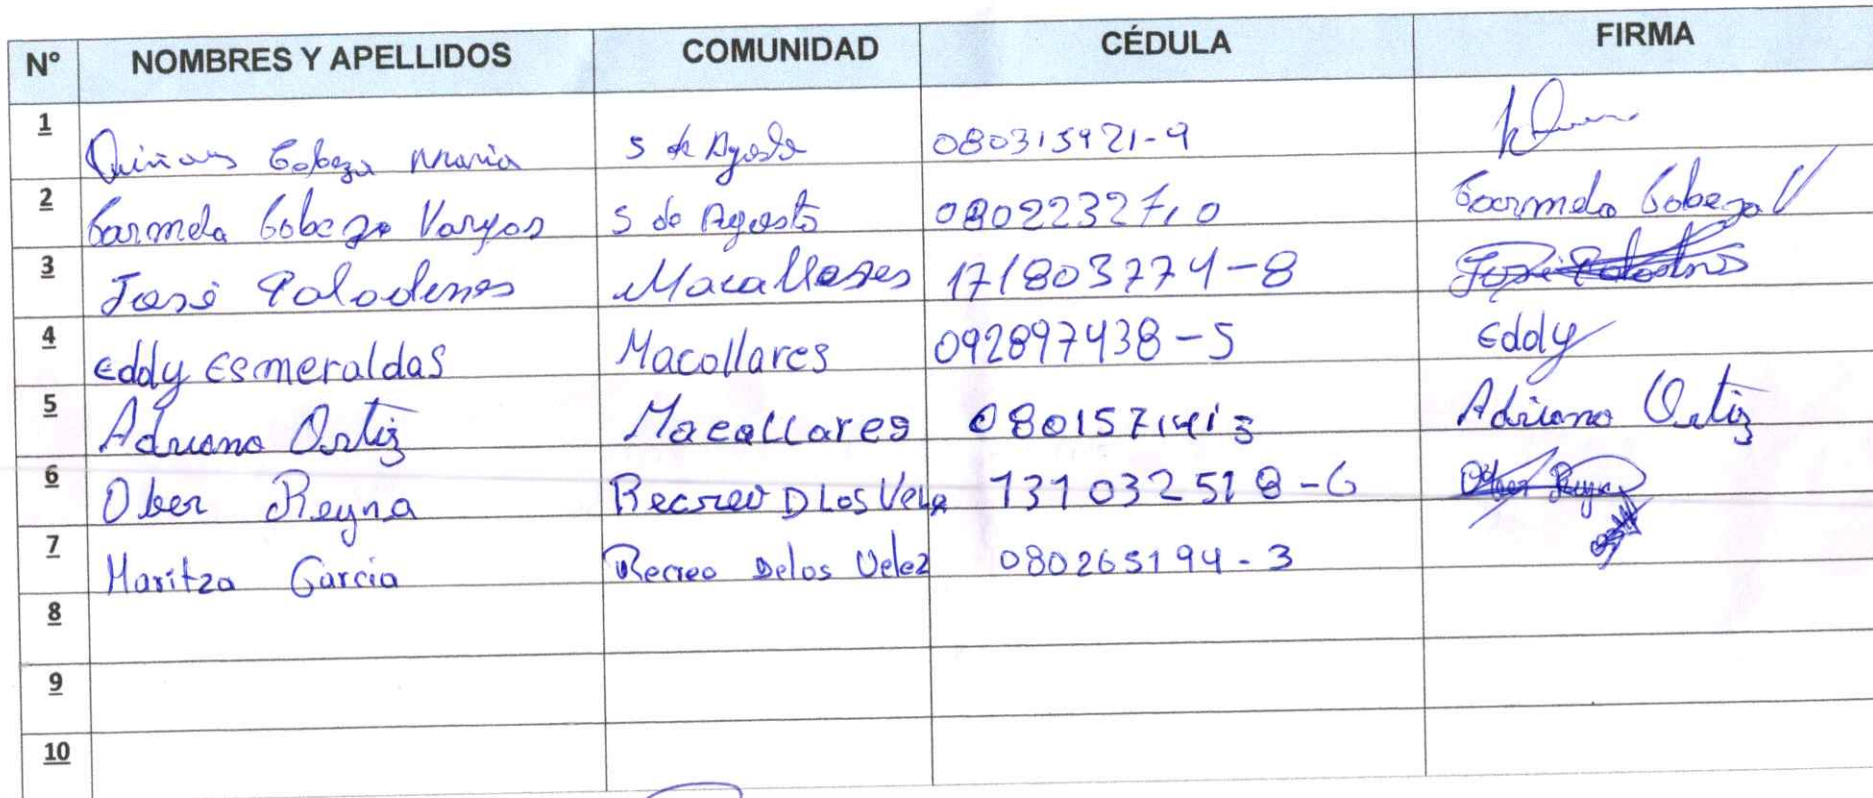 Nº NOMBRES Y APELLIDOS COMUNIDAD CÉDULA FIRMA
1 Quiñons Cabeza Maria 5 de Agosto 080315921-9
2 Carmela Cabeza Vargas 5 de Agosto 0802232710 Carmela Cabeza V
3 José Paladenes Macallares 171803774-8 José
4 Eddy Esmeraldas Macollares 092897438-5 Eddy
5 Adriano Ortiz Macallares 0801571413 Adriano Ortiz
6 Ober Reyna Recreo D Los Vele 131032518-6 Ober Reyna
7 Maritza Garcia Recreo Delos Velez 080265194-3
8
9
10